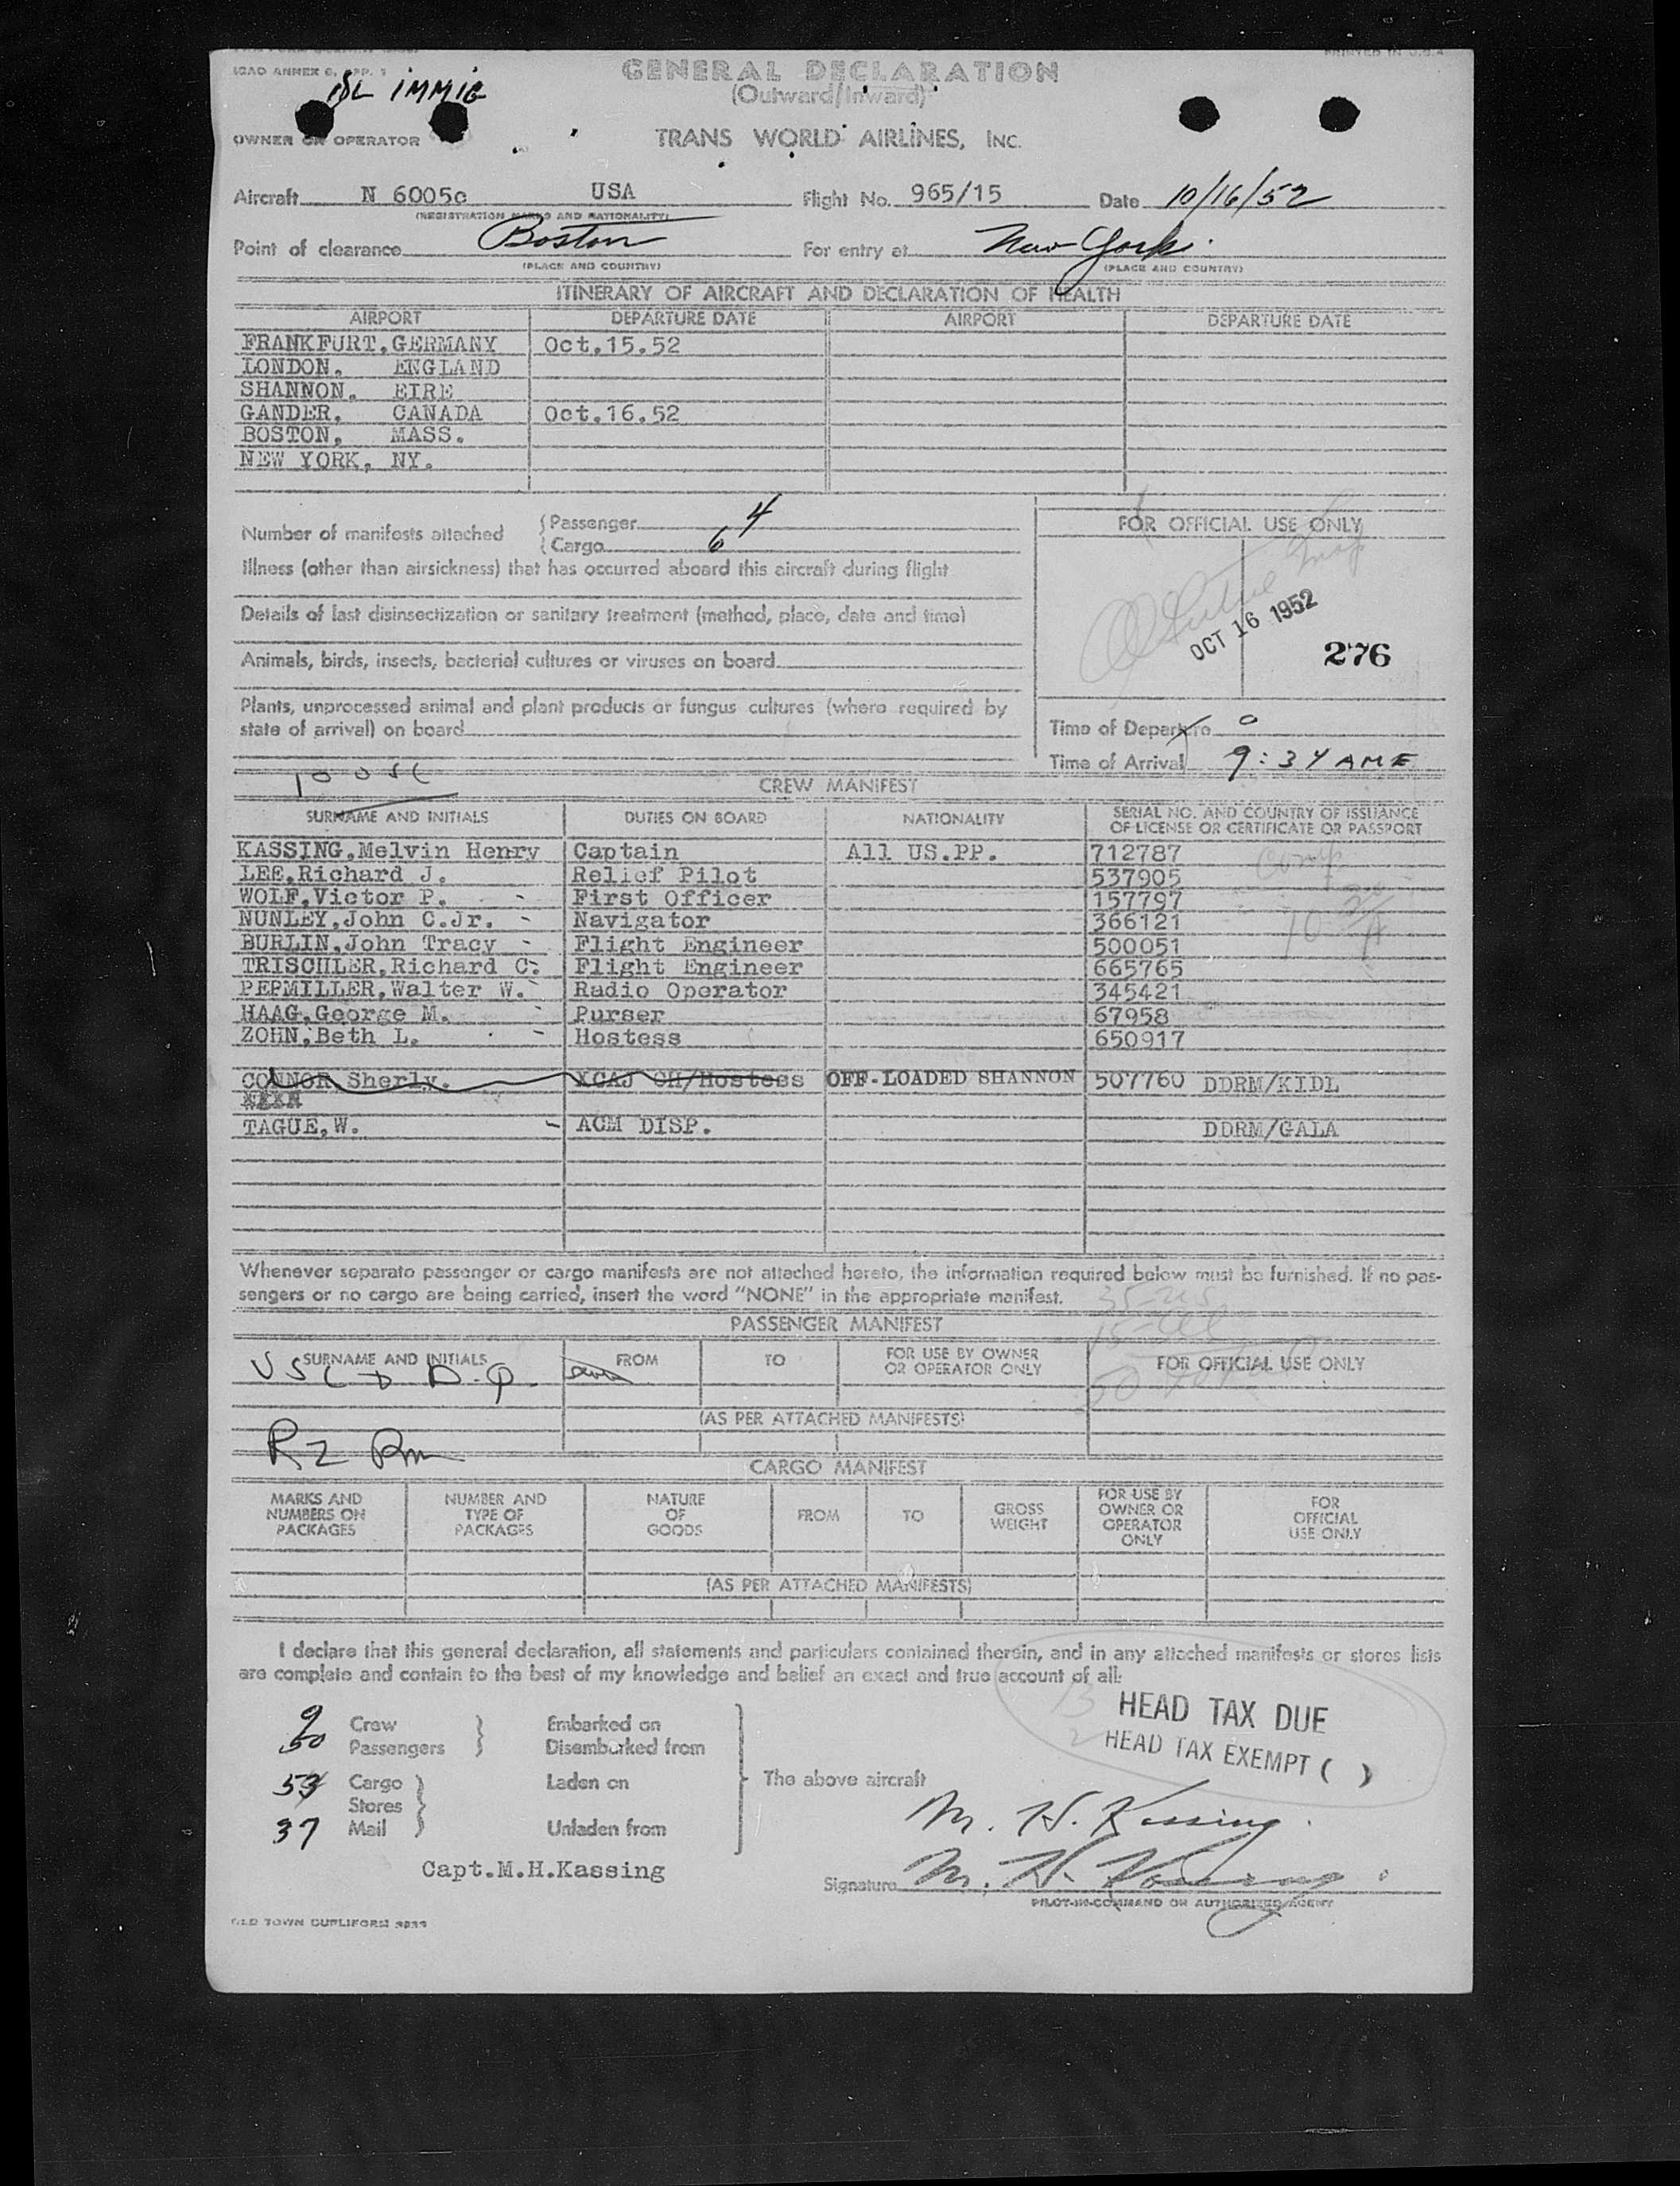 PRINTED IN U.S.A.
ICAO ANNEX 9, APP. 1
GENERAL DECLARATION
IMMIG
(Outward/Inward)
OWNER OR OPERATOR
TRANS WORLD AIRLINES, INC.
Aircraft N 6005c USA Flight No. 965/15 Date 10/16/52
(REGISTRATION MARKS AND NATIONALITY)
Point of clearance Boston For entry at New York
(PLACE AND COUNTRY) (PLACE AND COUNTRY)
ITINERARY OF AIRCRAFT AND DECLARATION OF HEALTH
AIRPORT DEPARTURE DATE AIRPORT DEPARTURE DATE
FRANKFURT,GERMANY Oct.15.52
LONDON, ENGLAND
SHANNON, EIRE
GANDER, CANADA Oct.16.52
BOSTON, MASS.
NEW YORK, NY.
Number of manifests attached
Passenger 4
Cargo 6
FOR OFFICIAL USE ONLY
Illness (other than airsickness) that has occurred aboard this aircraft during flight
Details of last disinsectization or sanitary treatment (method, place, date and time)
OCT 16 1952
276
Animals, birds, insects, bacterial cultures or viruses on board
Plants, unprocessed animal and plant products or fungus cultures (where required by
state of arrival) on board
Time of Departure
Time of Arrival 9:34 AM E
CREW MANIFEST
SURNAME AND INITIALS DUTIES ON BOARD NATIONALITY SERIAL NO. AND COUNTRY OF ISSUANCE
OF LICENSE OR CERTIFICATE OR PASSPORT
KASSING,Melvin Henry Captain All US.PP. 712787
LEE,Richard J. Relief Pilot 537905
WOLF,Victor P. - First Officer 157797
NUNLEY,John C.Jr. - Navigator 366121
BURLIN,John Tracy - Flight Engineer 500051
TRISCHLER,Richard C. - Flight Engineer 665765
PEPMILLER,Walter W. - Radio Operator 345421
HAAG,George M. - Purser 67958
ZOHN,Beth L. - Hostess 650917
CONNOR Sherly. XCAJ CH/Hostess OFF-LOADED SHANNON 507760 DDRM/KIDL
TAGUE,W. - ACM DISP. DDRM/GALA
Whenever separate passenger or cargo manifests are not attached hereto, the information required below must be furnished. If no pas-
sengers or no cargo are being carried, insert the word "NONE" in the appropriate manifest.
PASSENGER MANIFEST
SURNAME AND INITIALS FROM TO FOR USE BY OWNER
OR OPERATOR ONLY FOR OFFICIAL USE ONLY
(AS PER ATTACHED MANIFESTS)
CARGO MANIFEST
MARKS AND
NUMBERS ON
PACKAGES
NUMBER AND
TYPE OF
PACKAGES
NATURE
OF
GOODS
FROM
TO
GROSS
WEIGHT
FOR USE BY
OWNER OR
OPERATOR
ONLY
FOR
OFFICIAL
USE ONLY
(AS PER ATTACHED MANIFESTS)
I declare that this general declaration, all statements and particulars contained therein, and in any attached manifests or stores lists
are complete and contain to the best of my knowledge and belief an exact and true account of all:
HEAD TAX DUE
HEAD TAX EXEMPT ( )
9 Crew Embarked on
50 Passengers Disembarked from
Cargo Laden on The above aircraft
Stores
37 Mail Unladen from
M. H. Kassing
Capt.M.H.Kassing
Signature M. H. Kassing
PILOT-IN-COMMAND OR AUTHORIZED AGENT
OLD TOWN DUPLIFORM